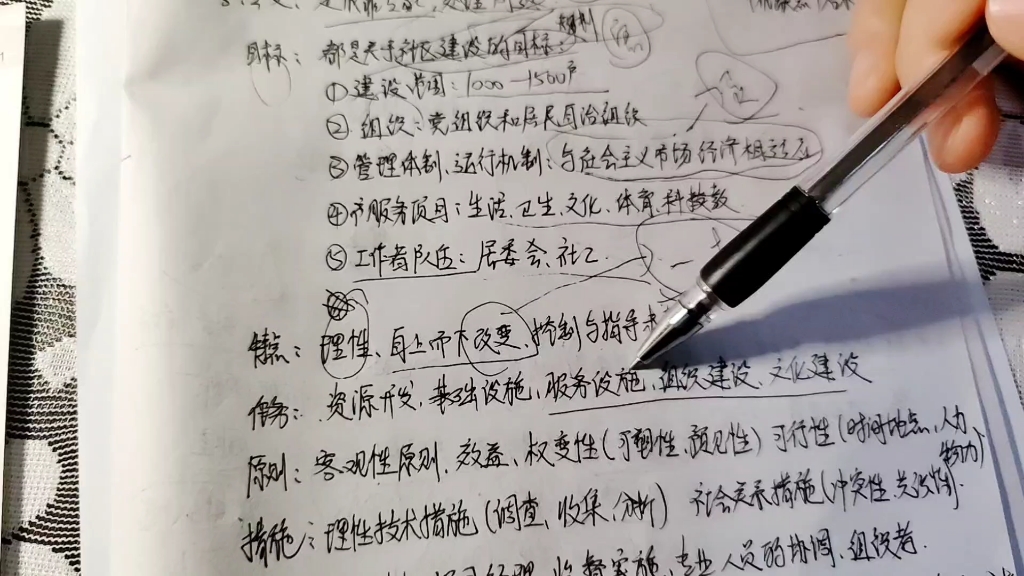 目标：都是关于社区建设的目标
①建设范围：1000—1500户
②组织：党组织和居民自治组织
③管理体制、运行机制：与社会主义市场经济相适应
④服务项目：生活、卫生、文化、体育、科技教
⑤工作者队伍：居委会、社工
特点：理性、自上而下改变、控制与指导
任务：资源开发、基础设施、服务设施、组织建设、文化建设
原则：客观性原则、效益、权变性（可塑性、预见性）可行性（时间地点、人力物力）
措施：理性技术措施（调查、收集、分析） 社会关系措施（冲突性
监督实施、专业人员的协调、组织者.